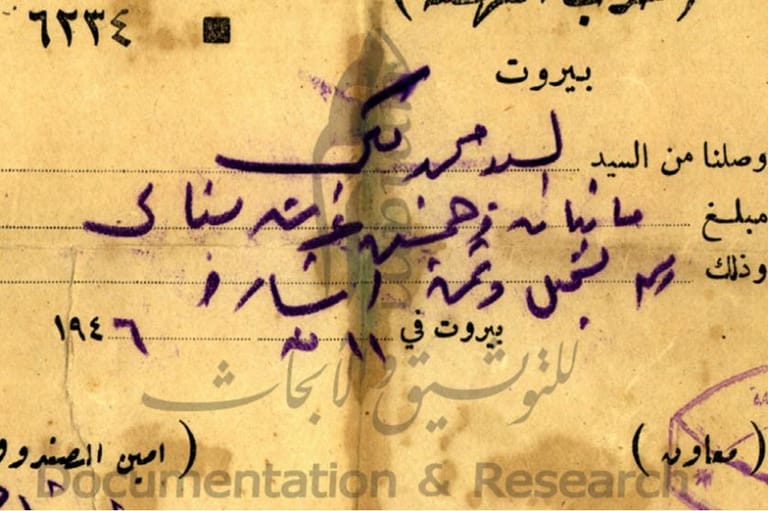 ٦٢٣٤
بيروت
وصلنا من السيد السيد محمد
مبلغ مائتان وخمسين غرش لبناني
وذلك رسم تسجيل وثمن اشارة
بيروت في ١١ ١٩٤٦
للتوثيق والأبحاث
( معاون ) ( امين الصندوق
Documentation & Research